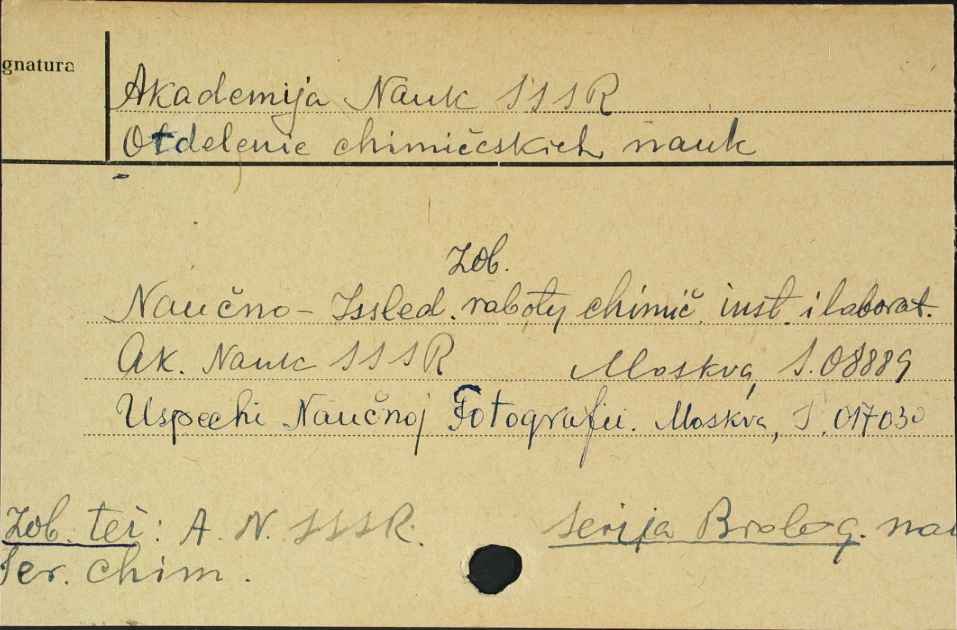 gnatura
Akademija Nauk SSSR
Otdelenie chimičeskich nauk
Zob.
Naučno - Issled. raboty chimič. inst. i laborat.
Ak. Nauk SSSR Moskva, S.08889
Uspechi Naučnoj Fotografii. Moskva, S. 017030
Zob. też: A. N. SSSR. Serija Biolog. nau
Ser. chim.